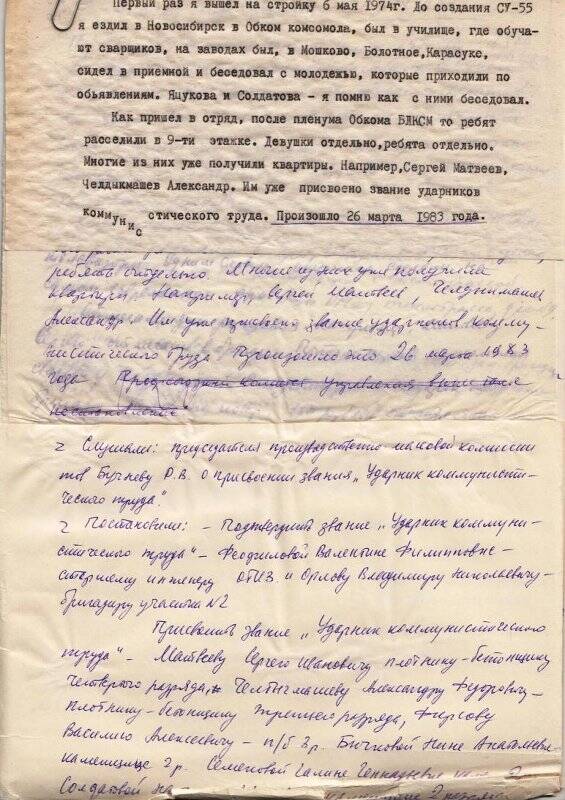 Первый раз я вышел на стройку 6 мая 1974г. До создания СУ-55
я ездил в Новосибирск в Обком комсомола, был в училище, где обуча-
ют сварщиков, на заводах был, в Мошково, Болотное, Карасуке,
сидел в приемной и беседовал с молодежью, которые приходили по
обьявлениям. Яцукова и Солдатова - я помню как с ними беседовал.
Как пришел в отряд, после пленума Обкома ВЛКСМ то ребят
расселили в 9-ти этажке. Девушки отдельно, ребята отдельно.
Многие из них уже получили квартиры. Например, Сергей Матвеев,
Челдыкмашев Александр. Им уже присвоено звание ударников
коммунистического труда. Произошло 26 марта 1983 года.
ребята отдельно. Многие из них уже получили
квартиры Например, Сергей Матвеев,
Александр Им уже присвоено звание ударников комму-
нистического труда Произошло это 26 марта 1983
года
постановление
2 Слушали: председателя производственно массовой комиссии
тов Р.В. о присвоении звания „Ударник коммунисти-
ческого труда".
2 Постановили: - Подтвердить звание „Ударник коммуни-
стического труда" - Валентине Филипповне -
старшему инженеру и Орлову Владимиру Николаевичу -
бригадиру участка №2
Присвоить звание „Ударник коммунистического
труда" - Матвееву Сергею Ивановичу плотнику-бетонщику
четвертого разряда, Александру Федоровичу -
плотнику-бетонщику третьего разряда, Фирсову
Василию Алексеевичу - п/б 3р. Бычковой Нине Анатольевне
каменщице 2р. Семеновой Галине Геннадьевне
Солдатовой